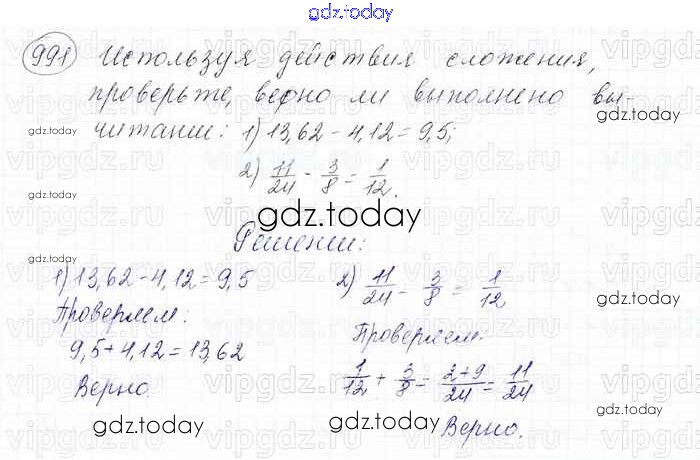 gdz.today
991 Используя действия сложения,
проверьте, верно ли выполнено вы-
читание: 1) 13,62 - 4,12 = 9,5;
2) 11/24 - 3/8 = 1/12.
gdz.today
Решение:
1) 13,62 - 4,12 = 9,5
Проверяем:
9,5 + 4,12 = 13,62
Верно.
2) 11/24 - 3/8 = 1/12
Проверяем:
1/12 + 3/8 = 2+9/24 = 11/24
Верно.
gdz.today
gdz.today
gdz.today
gdz.today
gdz.today
gdz.today
gdz.today
gdz.today